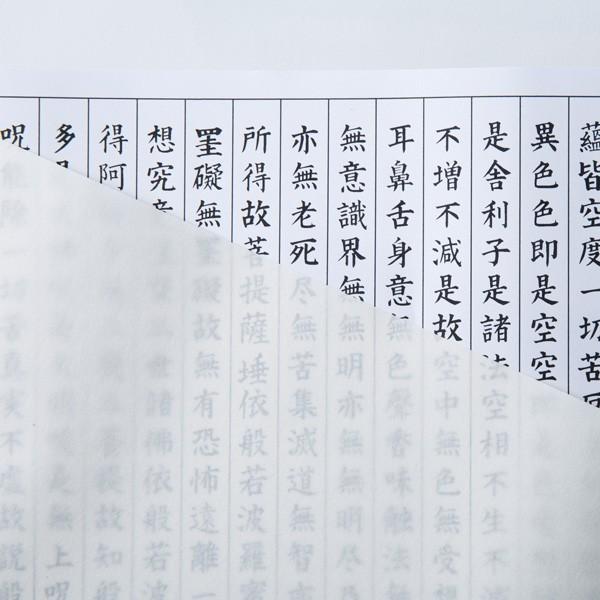 蘊皆空度一切苦
異色色即是空空
是舍利子是諸法空相不生不滅
不増不減是故空中無色無受想
耳鼻舌身意無色聲香味触法無
無意識界無無明亦無無明尽乃
亦無老死尽無苦集滅道無智亦
所得故菩提薩埵依般若波羅蜜
罣礙無罣礙故無有恐怖遠離一
想究竟世諸佛依般若波
得阿菩提故知般
多是無上呪
呪能除一切苦真実不虚故説般